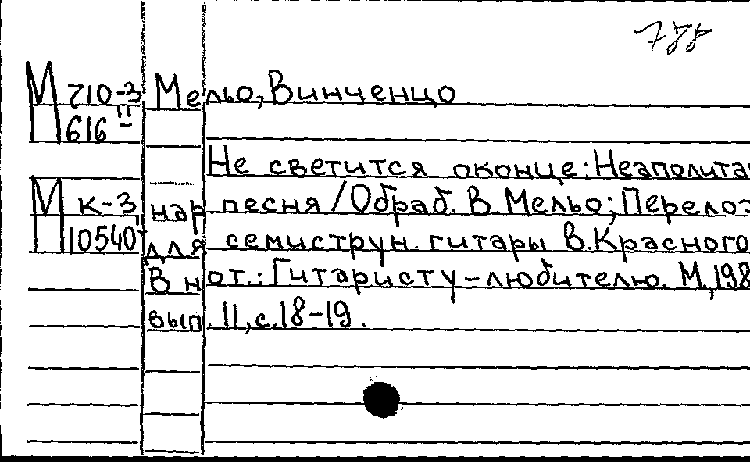 788
М 710-3 Мельо, Винченцо
616 II
Не светится оконце: Неаполита
М к-3 нар песня / Обраб. В. Мельо; Перелоз
10540 II для семиструн. гитары В. Красного
В нот.: Гитаристу-любителю. М., 198
вып. 11, с.18-19.